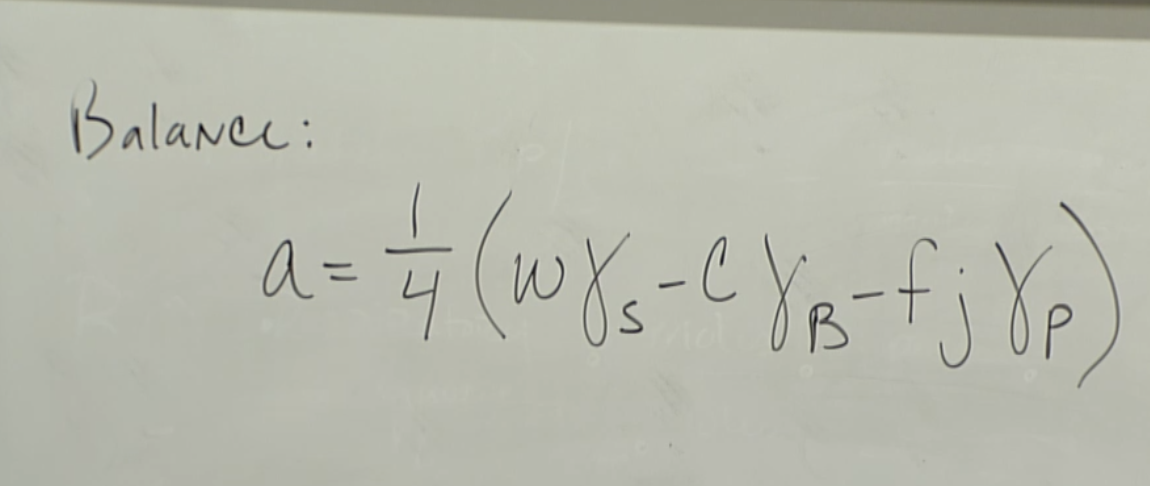 Balance:
a = 1/4 (wγ_S - cγ_B - fjγ_P)